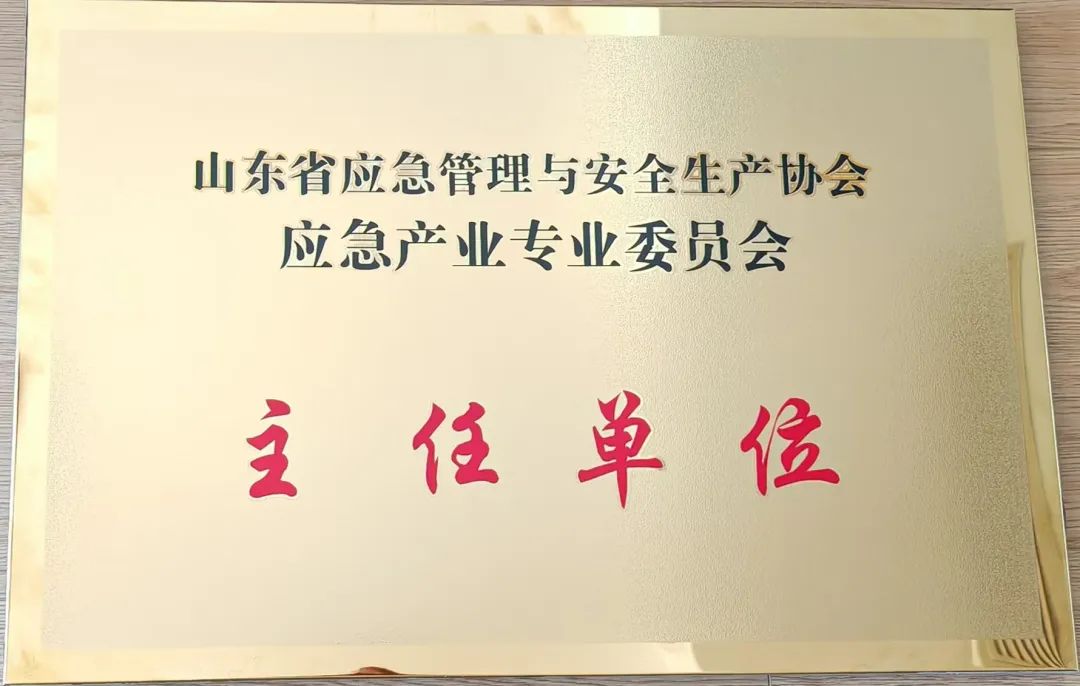 山东省应急管理与安全生产协会
应急产业专业委员会
主任单位